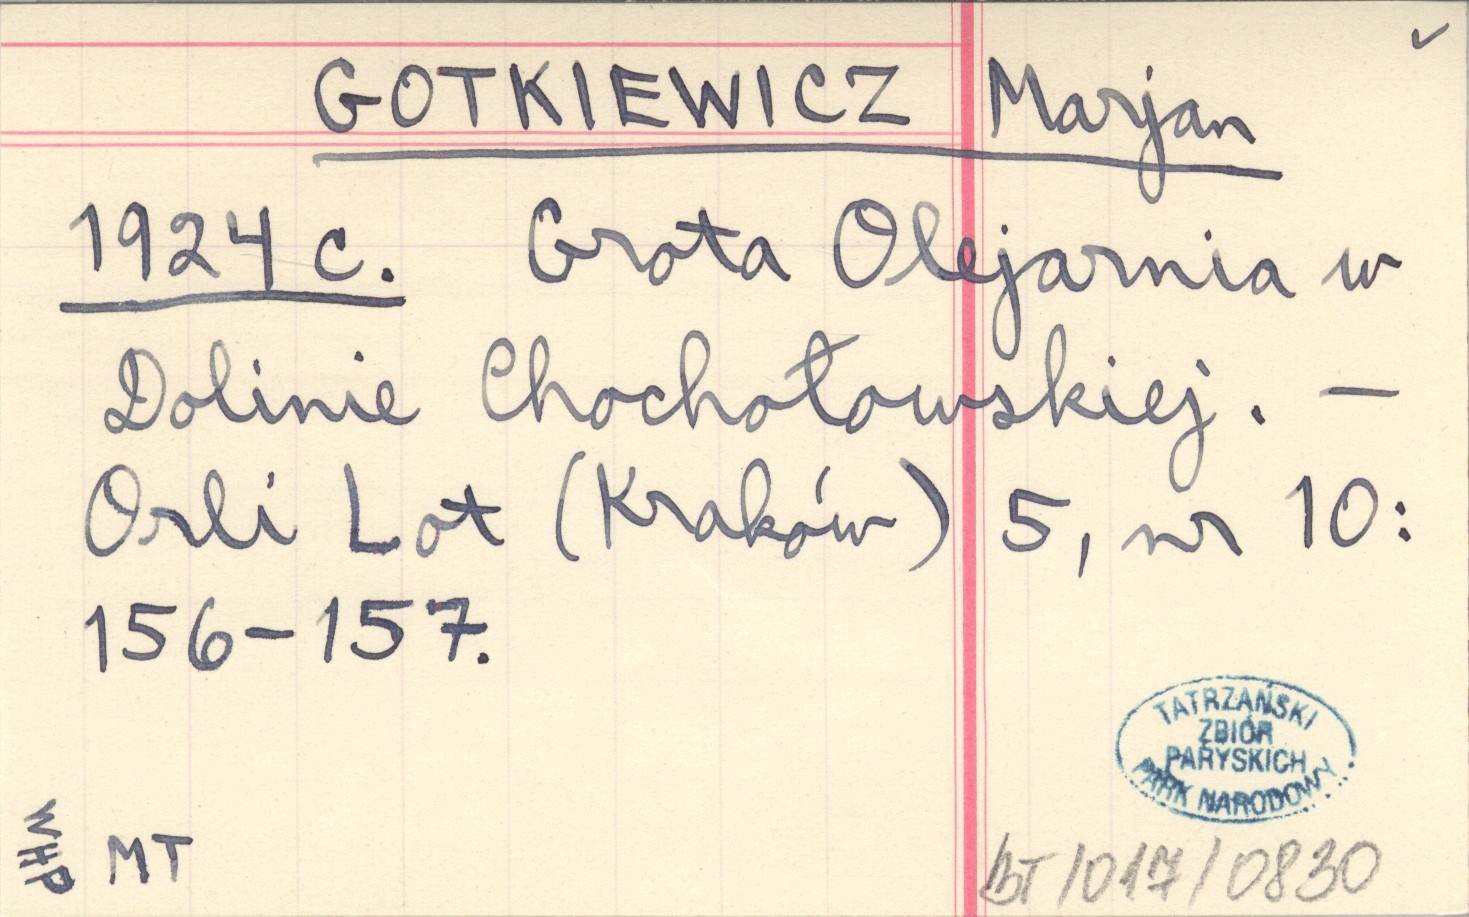 ✓
GOTKIEWICZ Marjan
1924 c. Grota Olejarnia w
Dolinie Chochołowskiej. —
Orli Lot (Kraków) 5, nr 10:
156-157.
TATRZAŃSKI
ZBIÓR
PARYSKICH
PARK NARODOWY
WHP
MT
BT/017/0830